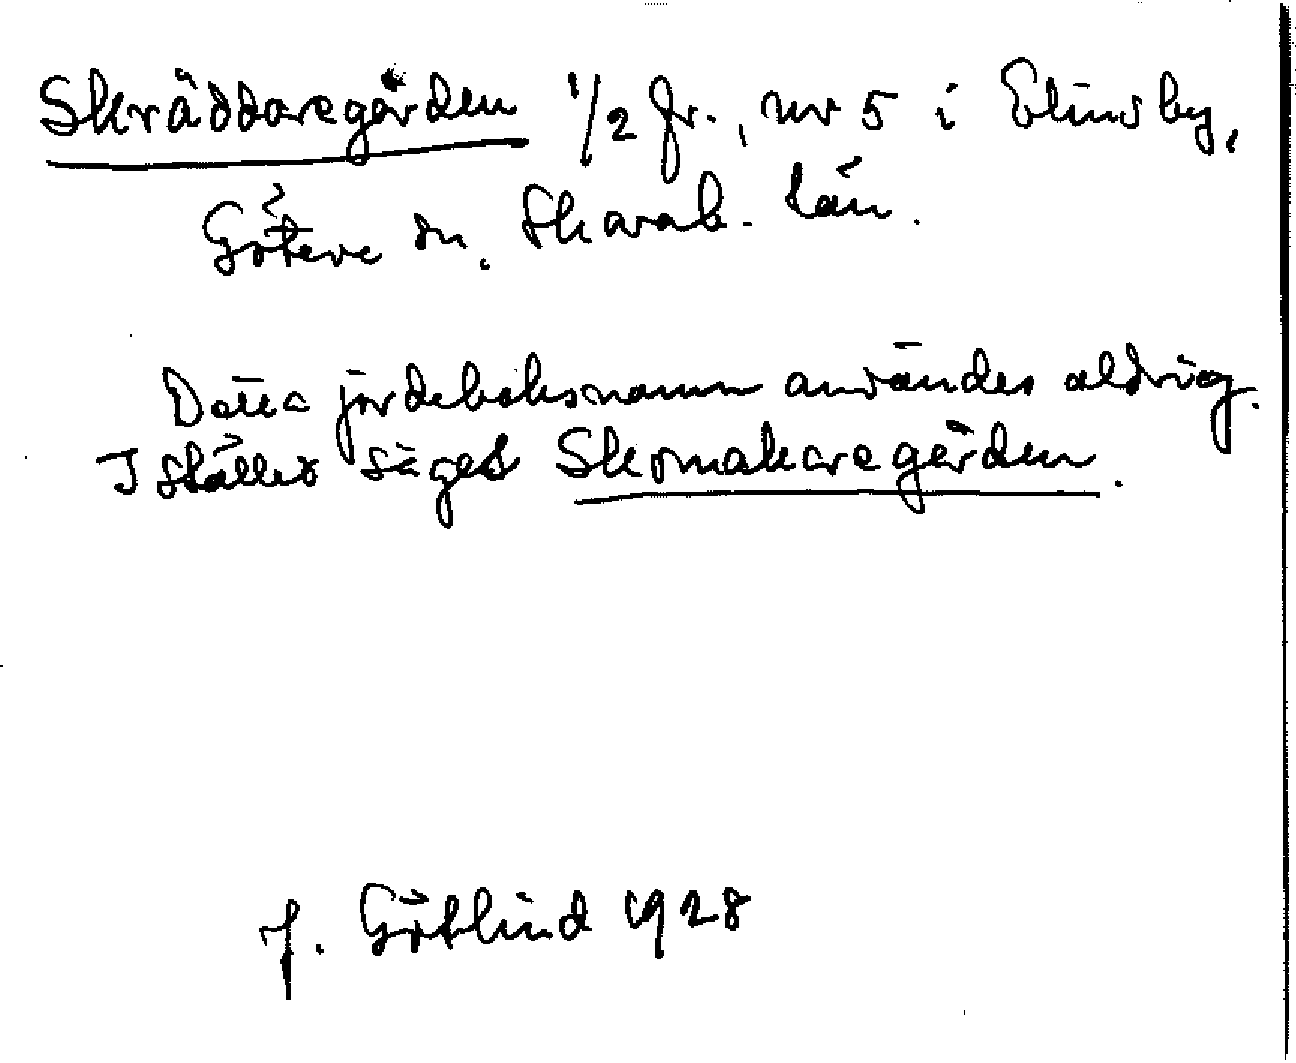 Skräddaregården 1/2 fr., nr 5 i Elinsby,
Göteve sn. Skarab. län.
Detta jordeboksnamn användes aldrig.
I stället säges Skomakaregården.
J. Götlind 1928